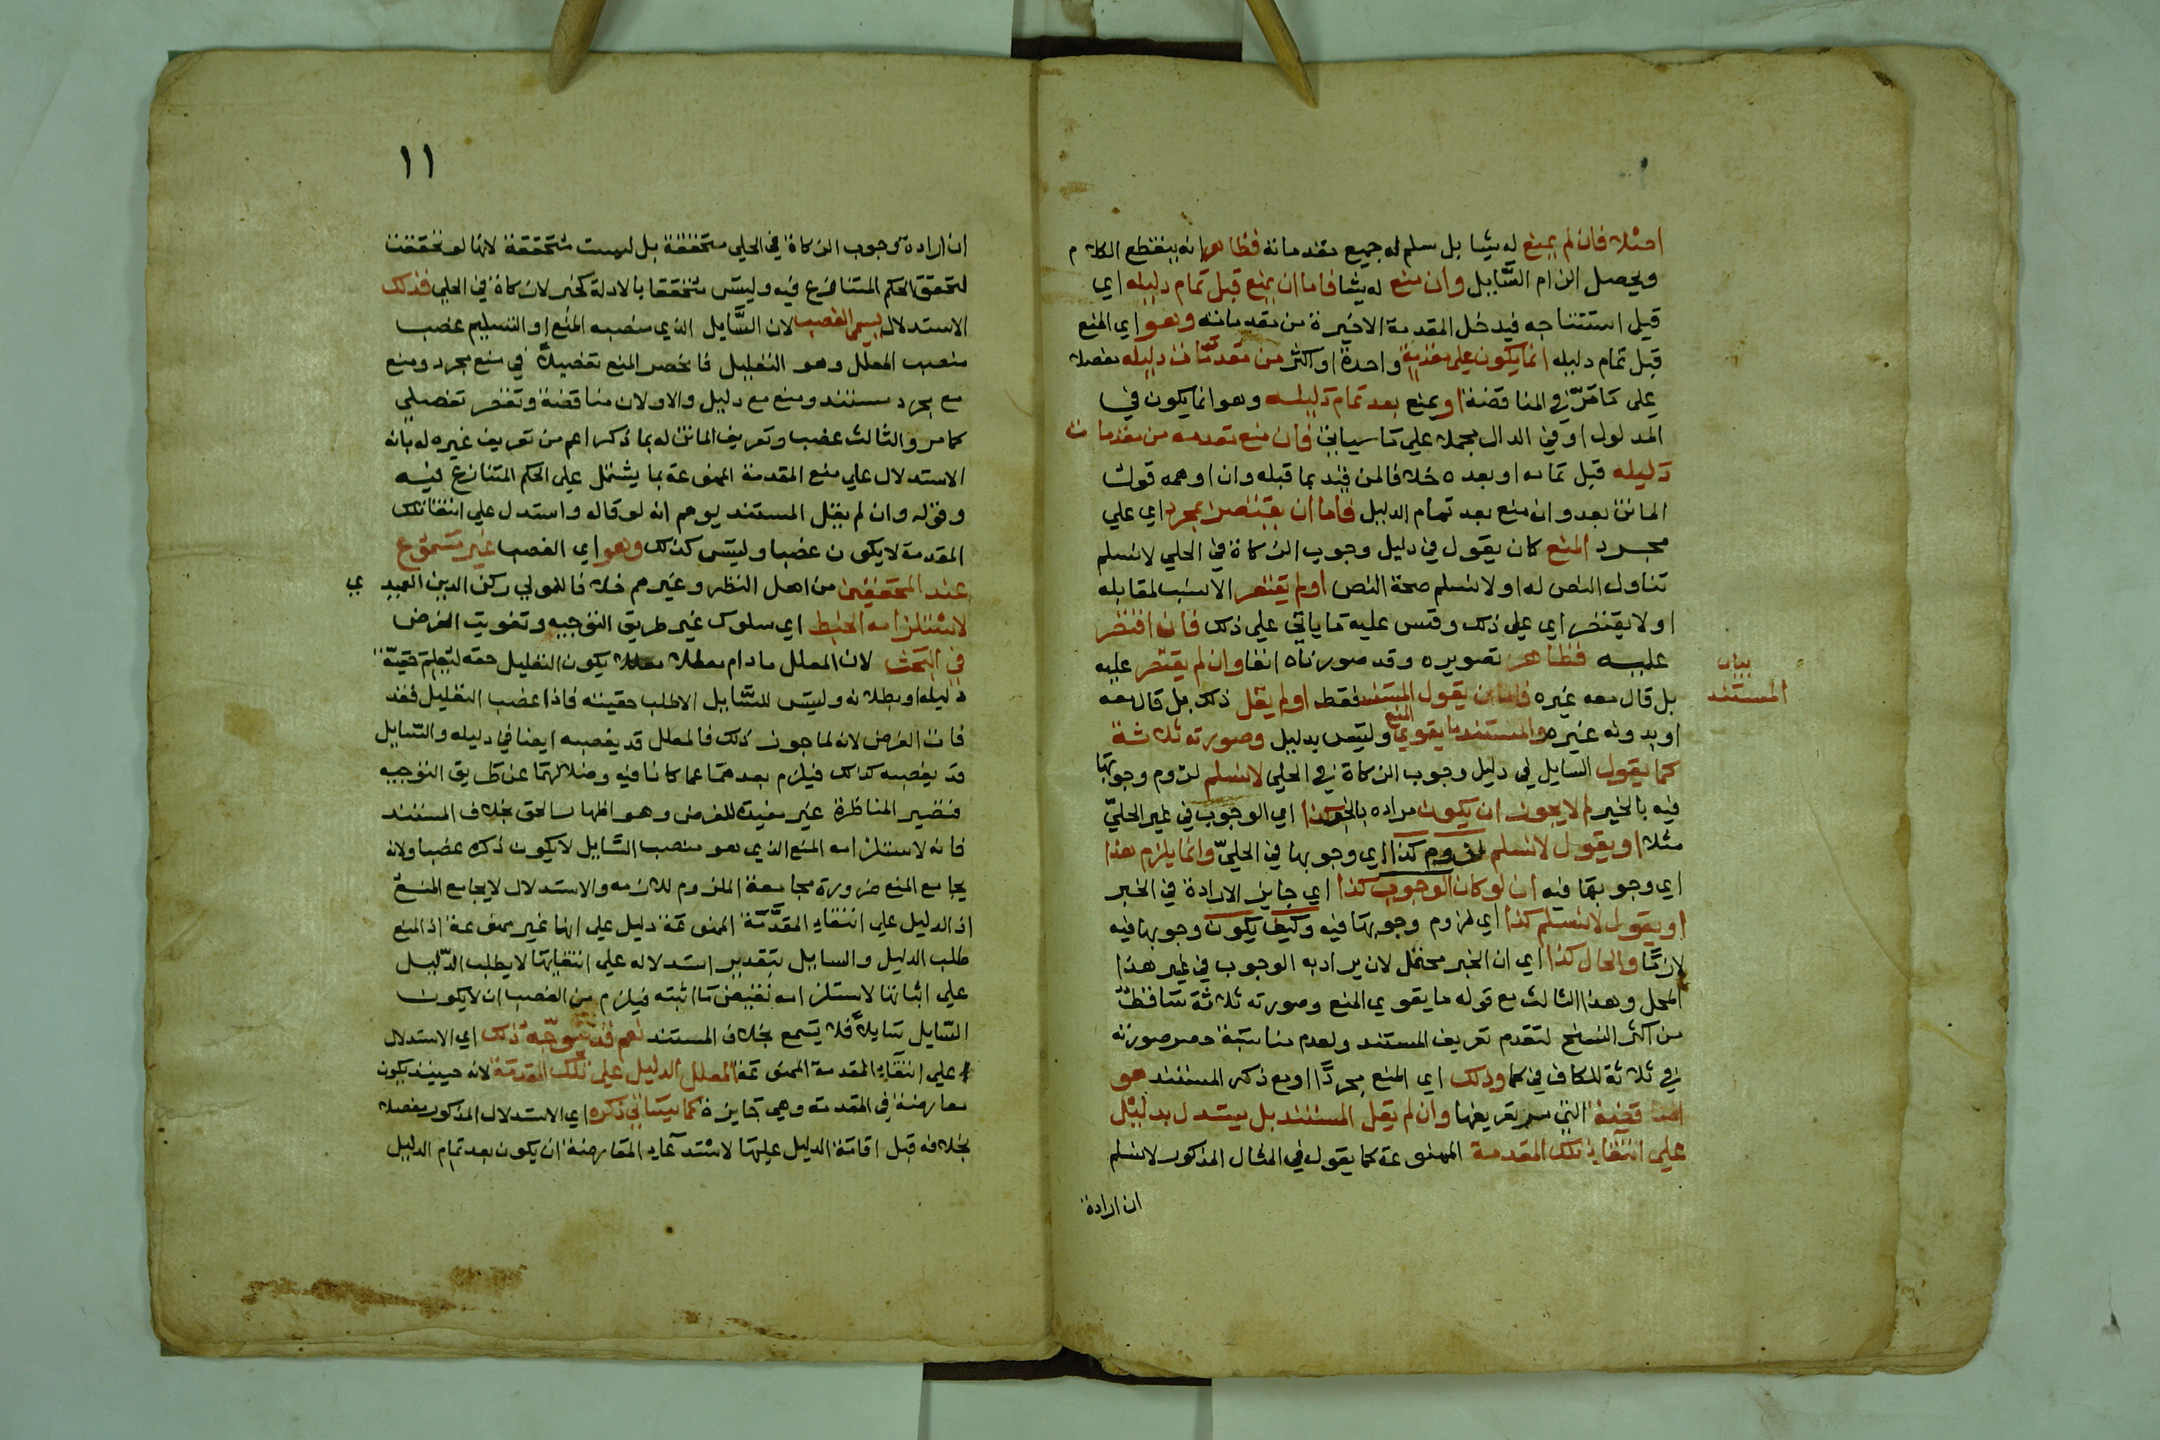 اصلا فان لم يمنع له شيا بل سلم له جميع مقدماته فظاهر انه ينقطع الكلام
ويحصل الزام السَّايل وان منع له شيا فاما ان يمنع قبل تمام دليله اي
قبل استنتاجه فيدخل المقدمة الاخيرة من مقدماته وهو اي المنع
قبل تمام دليله انما يكون على مقدمة واحدة او اكثر من مقدمات دليله مفصلا
على ما مرّ في المناقضة او يمنع بعد تمام دليله وهو انما يكون في
المدلول او في الدال مجملا علي ما سياتي فان منع مقدمة من مقدمات
دليله قبل تمامه او بعده خلافا لمن قيد بما قبله وان اوهمه قول
الماتن بعد وان منع بعد تمام الدليل فاما ان يقتصر بمجرد اي علي
مجرد المنع كان يقول في دليل وجوب الزكاة في الحلي لا نسلم
تناول النص له او لا نسلم صحة النص او لم يقتصر الانسب لمقابله
او لا يقتصر اي على ذلك وقس عليه ما ياتي على ذلك فان اقتصر
عليه فظاهر تصويره وقد صورناه انفا وان لم يقتصر عليه
بيان
المستند
بل قال معه غيره فاما ان يقول المستند فقط او لم يقل ذلك بل قال معه
او بدونه غيره والمستند ما يقوي المنع وليس بدليل وصورته ثلاثة
كما يقول السايل في دليل وجوب الزكاة في الحلي لا نسلم لزوم وجوبها
فيه بالخبر لم لا يجوز ان يكون مراده بالخبر كذا اي الوجوب في غير الحليّ
مثلا او يقول لا نسلم لزوم كذا اي وجوبها في الحليّ وانما يلزم هذا
اي وجوبها فيه ان لو كان الوجوب كذا اي جايز الارادة في الخبر
او يقول لا نسلم كذا اي لزوم وجوبها فيه وكيف يكون وجوبها فيه
لازما والحال كذا اي ان الخبر محتمل لان يراد به الوجوب في غير هذا
المحل وهذا الثالث مع قوله ما يقوي المنع وصورته ثلاثة ساقط
من اكثر النسخ لتقدم تعريف المستند ولعدم مناسبة حصر صورته
في ثلاثة للكاف في كما وذلك اي المنع مجردًا او مع ذكر المستند هو
المناقضة التي مر تعريفها وان لم يقل المستند بل يستدل بدليل
علي انتفاء تلك المقدمة الممنوعة كما يقول في المثال المذكور لا نسلم
ان ارادة
١١
ان ارادة وجوب الزكاة في الحلي متحققة بل ليست متحققة لانها لو تحققت
لتحقق الحكم المتنازع فيه وليس متحققا بالادلة كخبر لا زكاة في الحلي فذلك
الاستدلال يسمى الغصب لان السَّايل الذي منصبه المنع او التسليم غصب
منصب المعلل وهو التعليل فانحصر المنع تفصيلاً في منع مجرد ومنع
مع مجرد مستند ومنع مع دليل والاولان مناقضة ونقض تفصيلي
كما مر والثالث غصب وتعريف الماتن له بما ذكر اعم من تعريف غيره له بانه
الاستدلال علي منع المقدمة الممنوعة بما يشتمل على الحكم المتنازع فيه
وقوله وان لم يقل المستند يوهم انه لو قاله واستدل علي انتفا تلك
المقدمة لا يكون غصبا وليس كذلك وهو اي الغصب غير مسموع
عند المحققين من اهل النظر وغيرهم خلافا للمولي ركن الدين العميدي
لاستلزامه الخبط اي سلوك غير طريق التوجيه وتفويت الغرض
في البحث لان المعلل مادام معللا يكون التعليل حقه ليعلم حقية
دليله او بطلانه وليس للسَّايل الا طلب حقيته فاذا غصب التعليل فقد
فات الغرض لانه لما جوز ذلك فالمعلل قد يغصبه ايضا في دليله والسّايل
قد يغصبه كذلك فيلزم بعدهما عما كانا فيه وضلالهما عن طريق التوجيه
فتصير المناظرة غير مفيدة للغرض وهو اظهار الحق بخلاف المستند
فانه لاستلزامه المنع الذي هو منصب السَّايل لا يكون ذكره غصبا ولانه
يجامع المنع ضرورة مجامعة الملزوم للازمه والاستدلال لا يجامع المنع
اذ الدليل علي انتفاء المقدَّمة الممنوعة دليل على انها غير ممنوعة اذ المنع
طلب الدليل والسايل بتقدير استدلاله على انتفايها لا يطلب الدّليل
علي اثباتها لاستلزامه نقيض ما اثبته فيلزم من الغصب ان لا يكون
السّايل سايلاً فلا يسمع بخلاف المستند نعم قد يتوجّه ذلك اي الاستدلال
علي انتفاء المقدمة الممنوعة المعلل الدليل على تلك المقدمة لانه حينيذ يكون
معارضة في المقدمة وهي جايزة كما سياتي ذكره اي الاستدلال المذكور مفصلا
بخلافه قبل اقامة الدليل عليها لاستدعاء المعارضة ان يكون بعد تمام الدليل